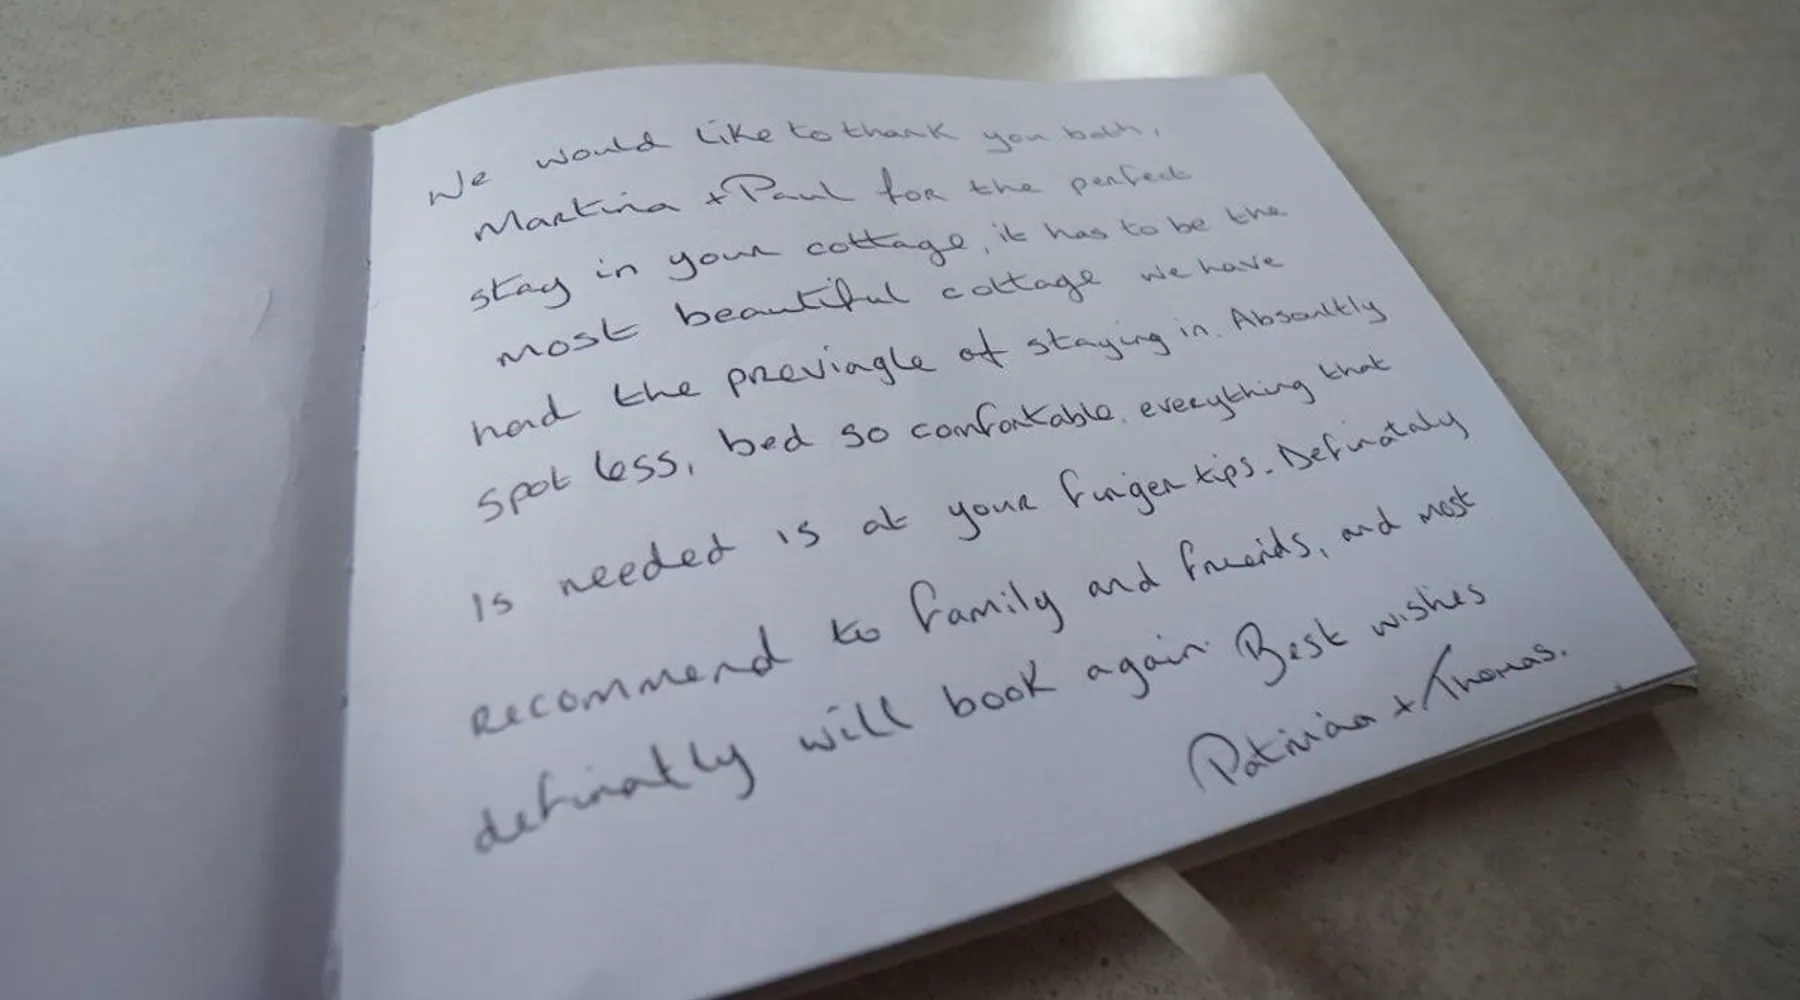 We would like to thank you both,
Martina + Paul for the perfect
stay in your cottage, it has to be the
most beautiful cottage we have
had the previngle of staying in. Absoultly
spot less, bed so comfortable. everything that
is needed is at your finger tips. Definataly
recommend to family and frieends, and most
definatly will book again. Best wishes
+ Thomas.